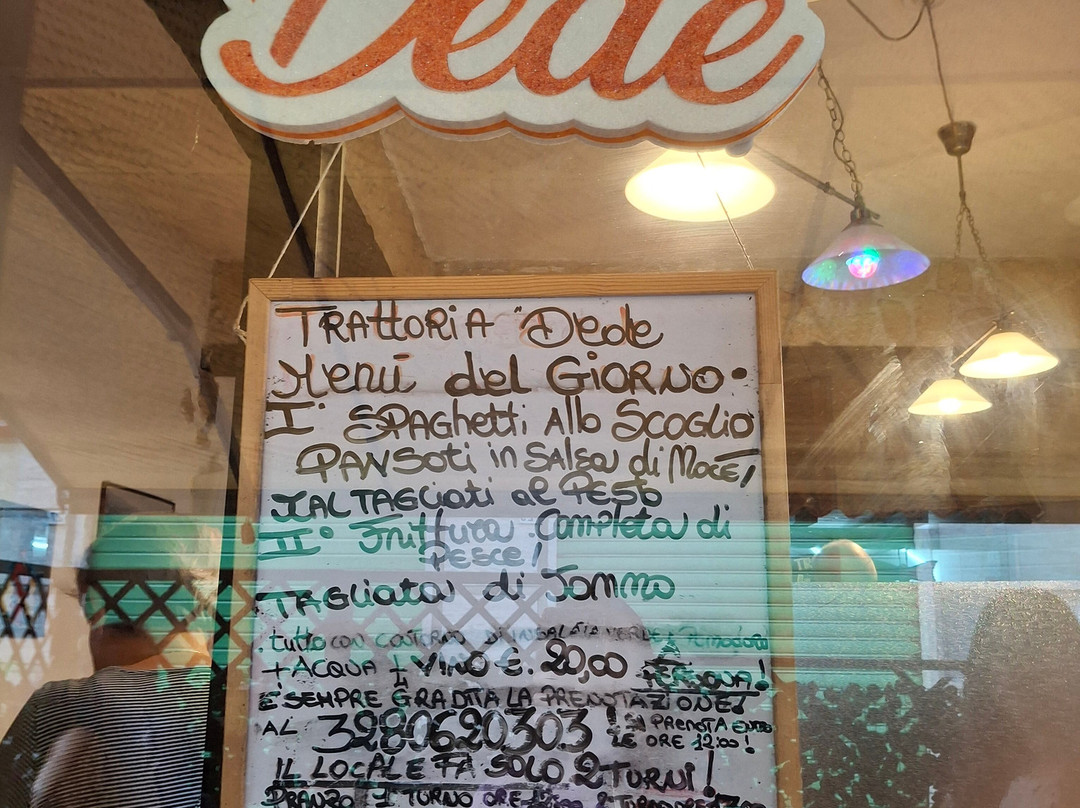 Dede
TRAttORiA "Dede
Menú del GiORNO.
I° SPAGhetti Allo SCOGLIO
PANSOti in SAlSA di Noce!
TAGLiati al PESto
II° Frittura Completa di
PESCE!
TAGliata di Tonno
tutto con CONTORNO DI INSALATA VERDE e Pomodoro
+ ACQUA + VINO €. 20,00 A PERSONA!
È SEMPRE GRADITA LA PRENOTAZIONE!
AL 3280620303! Si PRENOTA ENTRO
LE ORE 12:00!
IL LOCALE FA SOLO 2 TURNI!
PRANZO 1° TURNO ORE